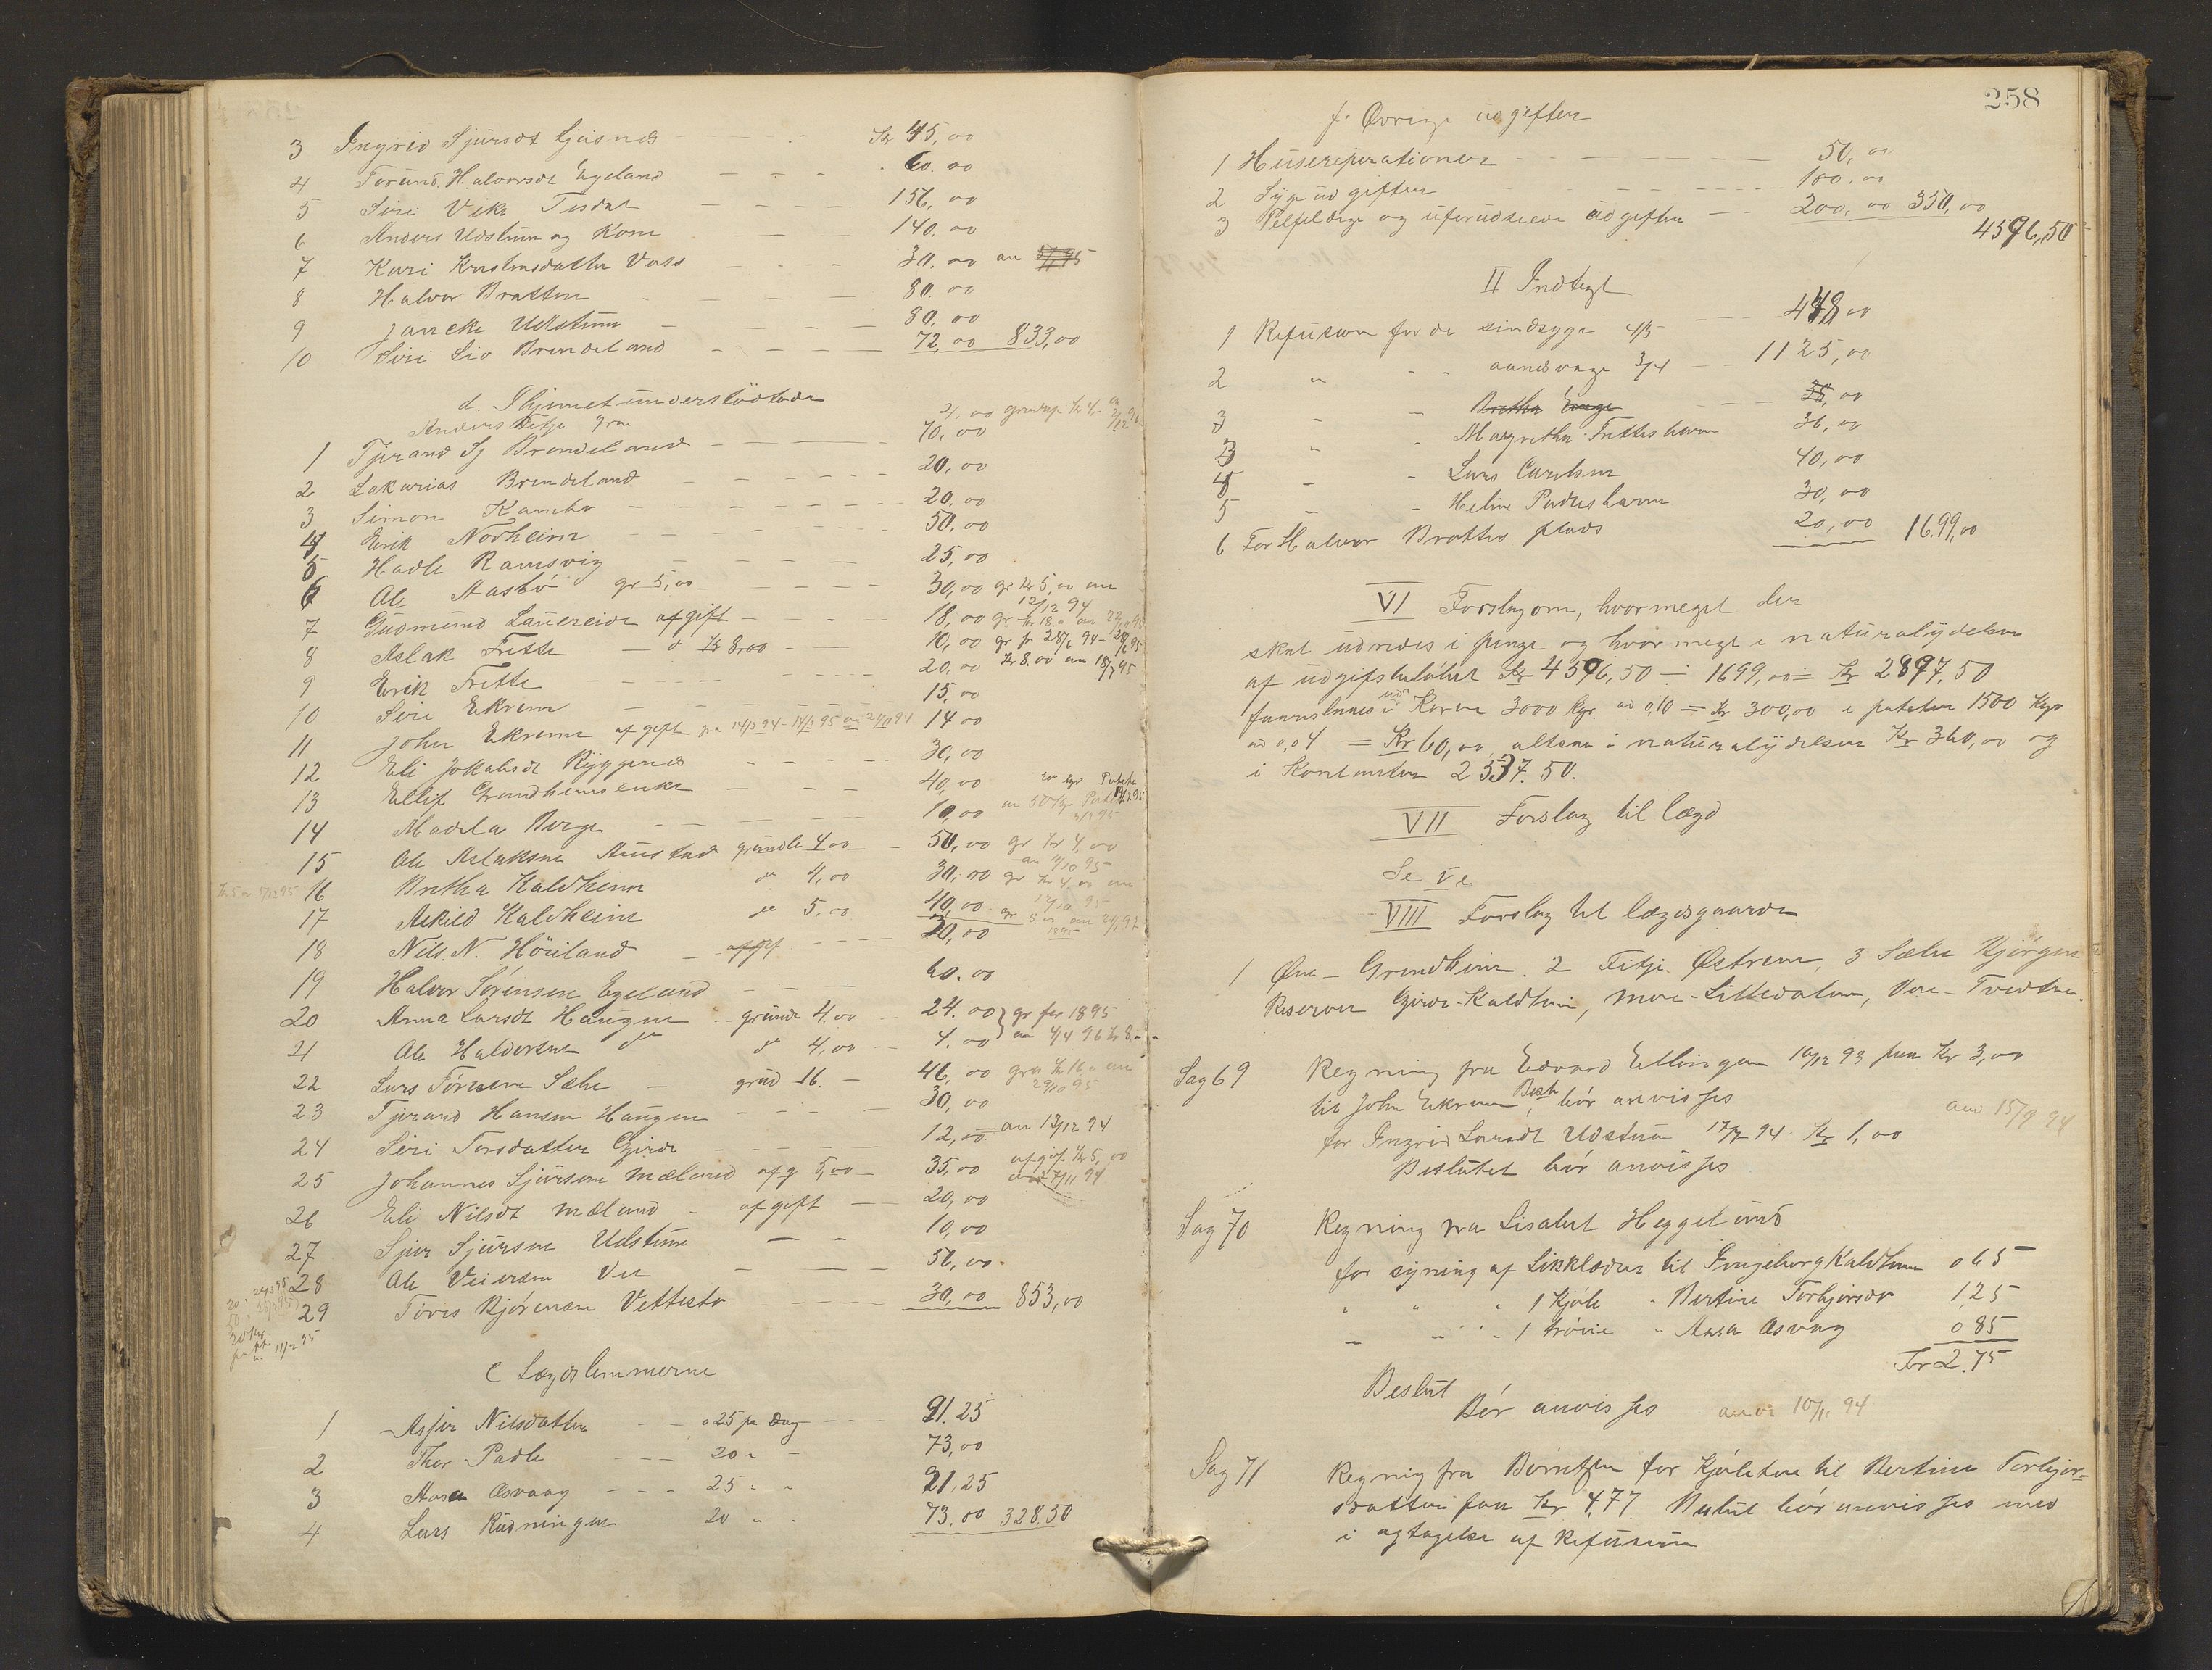 3 Ingrid Sjursdt Gjasnes Kr 45,00
4 Torund Halvorsdt Egeland 60.00
5 Siri Vike Tisdal 156,00
6 Anders Udstuen og Kone 140.00
7 Kari Knutsdatter Vass 30.00 an
8 Halvor Bratten 80.00
9 Jancke Udstuen 80,00
10 Siri Lio Brendeland 72,00 833,00
d. Ihjemet understöttede
Anders Fitje 21,00
1 Tjerand Sj Brendeland 70,00
2 Sakarias Brendeland 20,00
3 Simon Kambo 20.00
4 Erik Norheim 50.00
5 Hadle Ramsvig 25,00
6 Ole Aasbö gr 5,00 30,00 gr Kr 5,00 an
12/12 94
7 Gudmund Lauereide afgift 18,00 gr Kr 18.
8 Aslak Frette Kr 8,00 10,00 gr fr 28/6 94 - 28/6 95
9 Erik Frette 20,00 Kr 8.00 an 18/7 95
10 Siri Ekrem 15,00
11 John Ekrem afgift fra 14/3 94 - 14/3 95 14.00
12 Eli Jokabsdt Ryggenes 30,00
13 Ellif Grindheimsenke 40,00
14 Madela Berge 10,00
15 Ole Aslaksen Austad grunde 4.00 50,00 gr Kr 4,00
an 14/10 95
16 Britha Kaldheim do 4,00 30,00 gr Kr 4,00 an
17 Askild Kaldheim do 5,00 40,00
18 Nils. N. Höiland 20,00
19 Halvor Sörensen Egeland 60.00
20 Anna Larsdt Haugen grunde 4,00 24.00 gr for 1895
21 Ole Haldorsen do do 4,00 4.00 an 4/4 96 Kr 8.
22 Lars Törresen Sæle grud 16. 46,00
23 Tjerand Hansen Haugen 30,00
24 Siri Torsdatter Gjerde 12,00 an 13/12 94
25 Johannes Sjursen Mæland afg 5,00 35,00 afgift Kr 5,00
26 Eli Nilsdt Mæland afgift 20,00
27 Sjur Sjursen Udstuen 10,00
28 Ole Veiersen Vee 50,00
29 Töres Björnsen Vettestø 30,00 853,00
e Lægdslemmerne
1 Asser Nilsdatter 025 pr Dag 91.25
2 Thor Padle 20 " 73,00
3 Aasa Osvaag 25 " " 91,25
4 Lars Rudningen 20 " 73.00 328.50
258
f. Øvrige udgifter
1 Husereperationer 50,00
2 Syge udgifter 100.00
3 Tilfeldige og uforudseede udgifter 200,00 350,00
4596,50
II Indtægt
1 Refusion for de sindsyge 4/5 448,00
2 " " " aandsvage 3/4 1125,00
3 " " Britha Enge 25,00
3 " " Magretha Frettesharm 36,00
4 " " Lars Carlsen 40,00
5 " " Heline Padlesharm 30,00
6 For Halvor Brattes plads 20,00 1699,00
VI Forslag om, hvormeget der
skal udredes i penge og hvor meget i naturalydelser
af udgifstulabet Kr 4596,50 ÷ 1699,00 = Kr 2897,50
ud i Korn 3000 Kgr. ad 0,10 = Kr 300,00 i poteter 1500 Kgr
ad 0,04 = Kr 60,00 altsaa i naturalydelser Kr 360,00 og
i Kontanter 2537.50.
VII Forslag til lægd
Se V e
VIII Forslag til lægdsgaarde
1 Øvre - Grindheim. 2 Fitje. Østrem, 3 Sæle Kjørgen
Reserver Gjerde-Kaldheim, Moe-Litledalen, Vere-Tvedten.
Sag 69 Regning fra Edvard Ellingsen 10/12 93 paa Kr 3,00
til John Ekrem, Beslu bör anvises
for Ingrid Larsdt Udstuen 17/2 94 Kr 1,00 anv 15/9 94
Beslutet bör anvises
Sag 70 Regning fra Lisabet Heggelund
for syning af Liklæder til Ingeborg Kaldheim 065
" " " 1 Kjole " Bertine Torbjörsdr 1,25
" " " 1 tröie " Aasa Osvag 085
Kr 2.75
Beslut
Bör anvises anv 10/11 94
Sag 71 Regning fra Berntzen for Kjoletøi til Bertine Torbjör=
datter paa Kr 4,77. Beslut bör anvises med
iagtagelse af Refusion